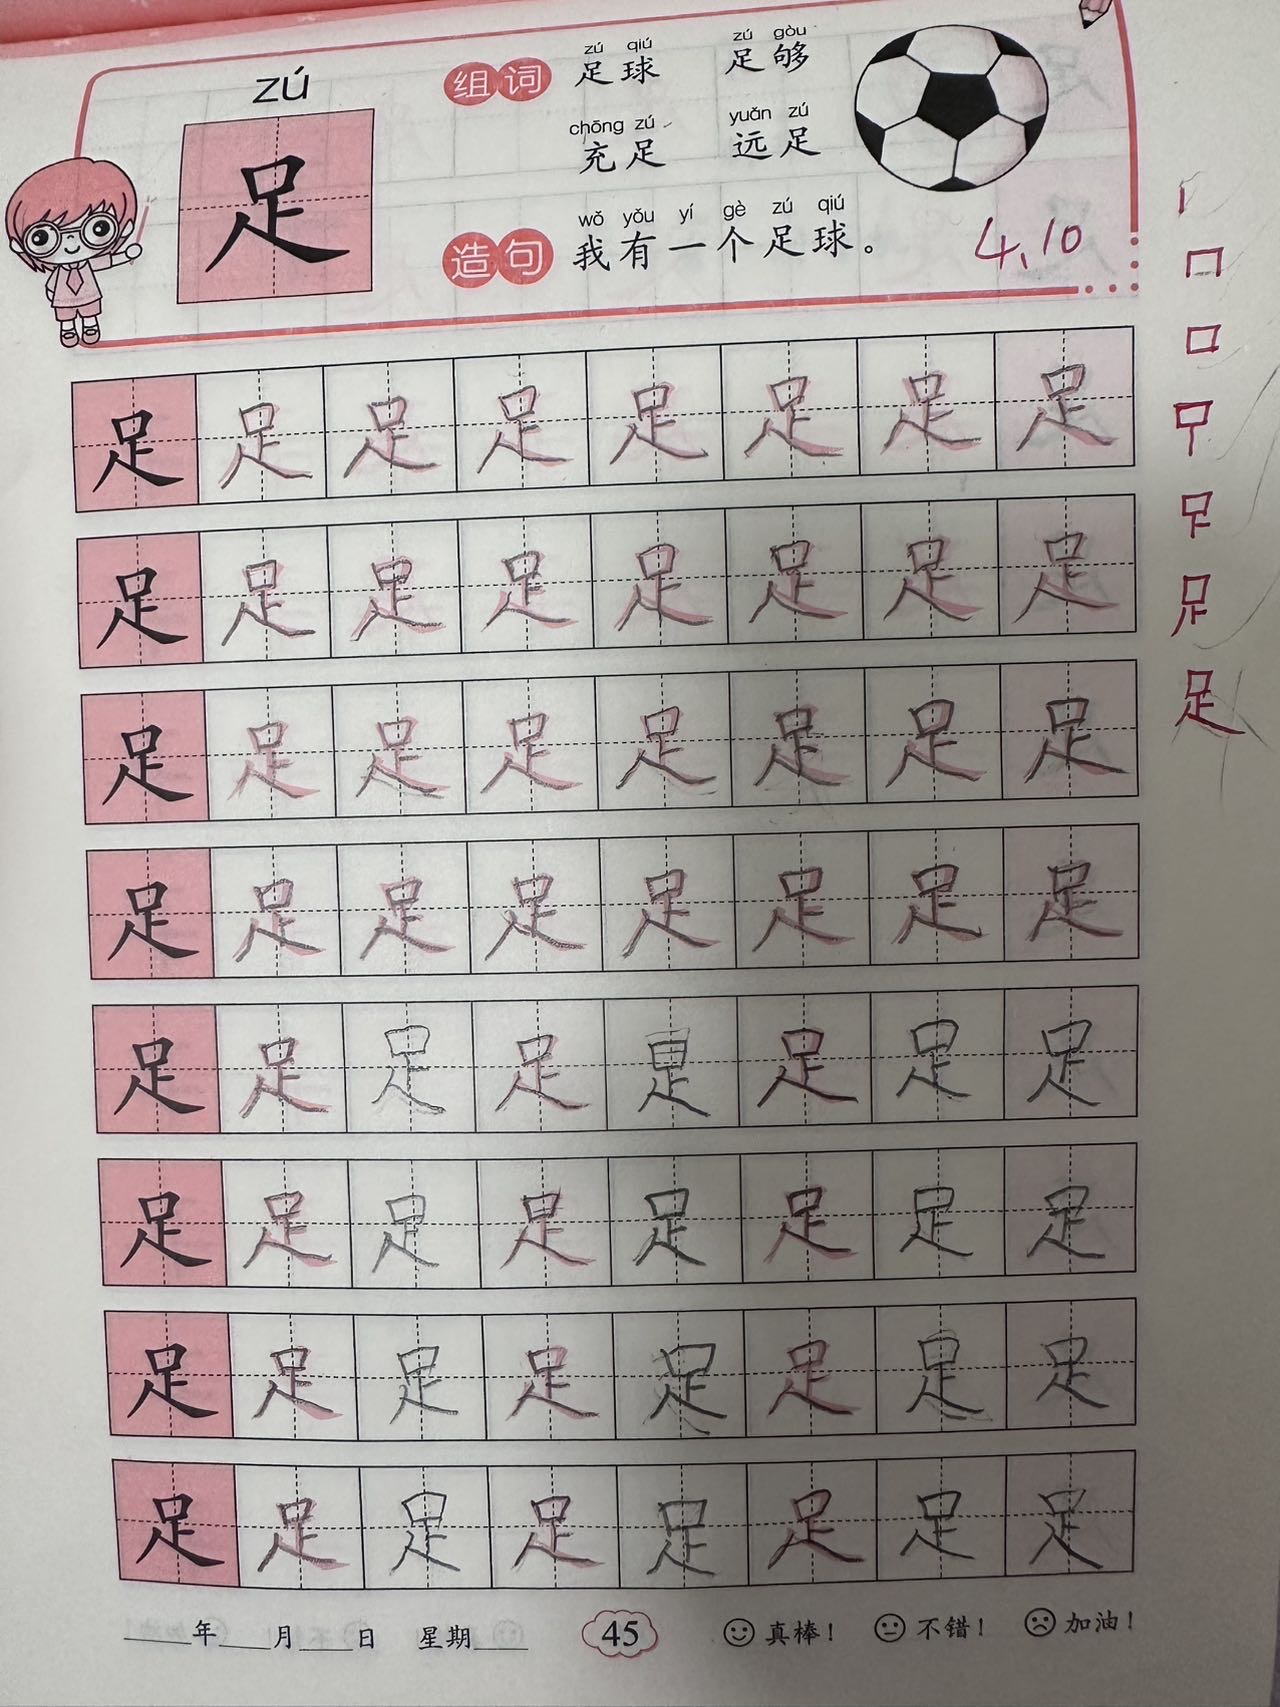 zú
足
组词 zú qiú zú gòu
足球 足够
chōng zú yuǎn zú
充足 远足
wǒ yǒu yí gè zú qiú
造句 我有一个足球。
4.10
足 足 足 足 足 足 足 足
足 足 足 足 足 足 足 足
足 足 足 足 足 足 足 足
足 足 足 足 足 足 足 足
足 足 足 足 足 足 足 足
足 足 足 足 足 足 足 足
足 足 足 足 足 足 足 足
足 足 足 足 足 足 足 足
足
年 月 日 星期 45 真棒! 不错! 加油!